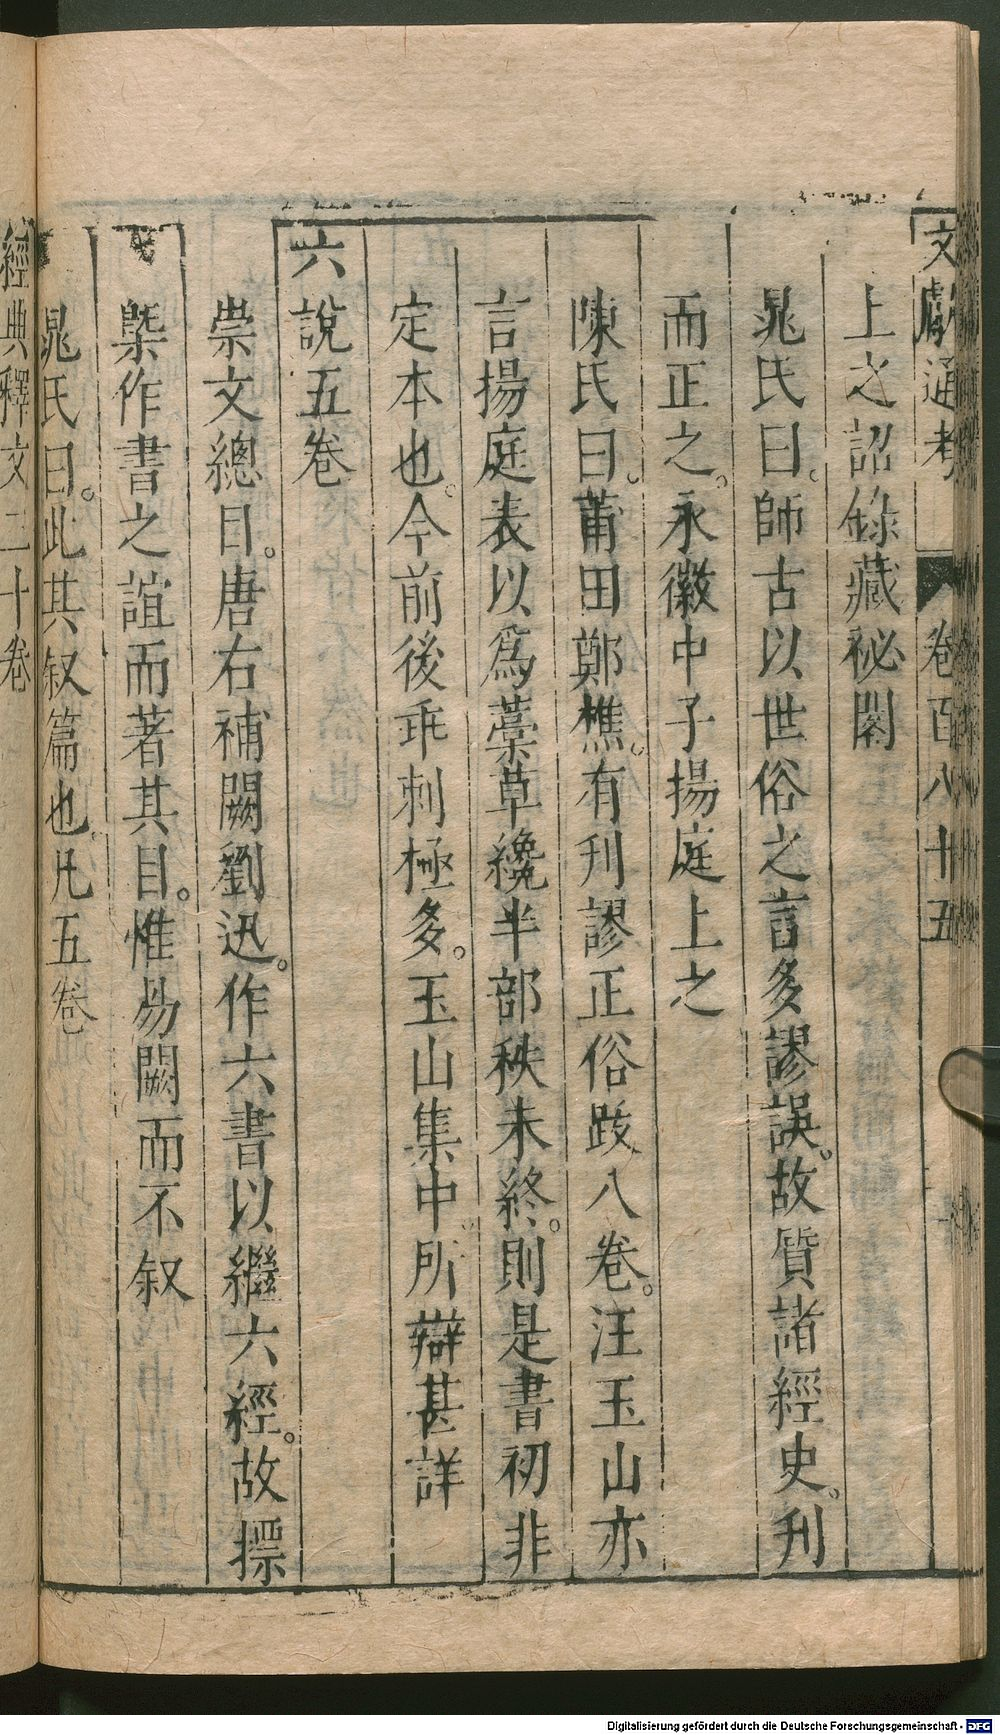 文獻通考 卷百八十五
上之詔錄藏祕閣
晁氏曰。師古以世俗之言多謬誤。故質諸經史。刋
而正之。永徽中子揚庭上之
陳氏曰。莆田鄭樵。有刋謬正俗跋八卷。汪玉山亦
言揚庭表以爲藁草纔半部秩未終。則是書初非
定本也。今前後乖刺極多。玉山集中。所辯甚詳
六說五卷
崇文總目。唐右補闕劉迅。作六書以繼六經。故摽
槩作書之誼而著其目。惟易闕而不叙
晁氏曰。此其叙篇也。凡五卷
經典釋文三十卷
Digitalisierung gefördert durch die Deutsche Forschungsgemeinschaft - DFG